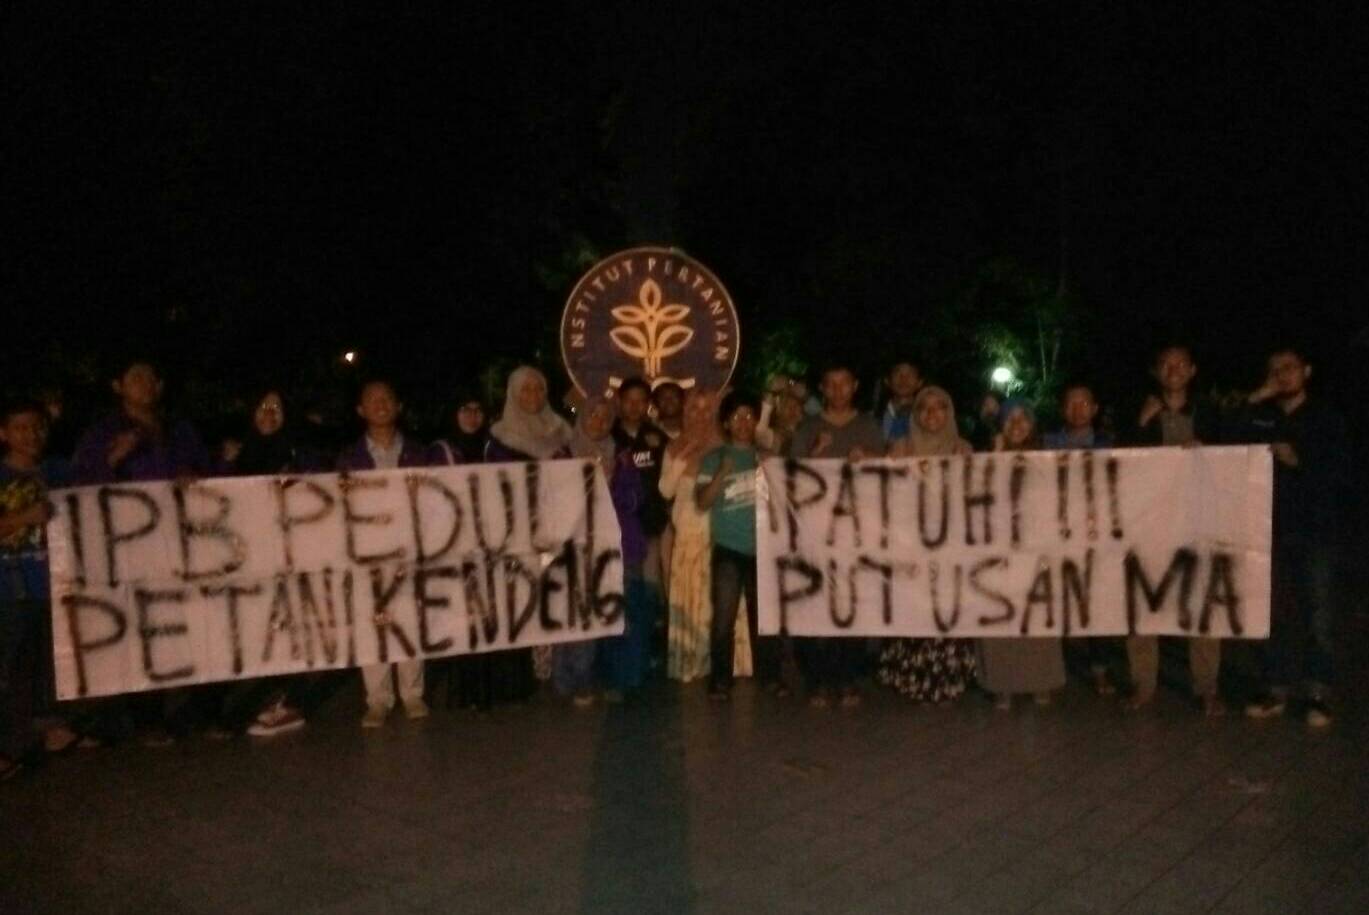 INSTITUT PERTANIAN
IPB PEDULI
PETANI KENDENG
PATUHI !!!
PUTUSAN MA